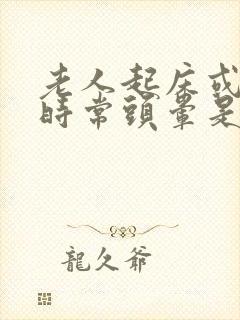 老人起床或
時常頭暈是
龍久爺